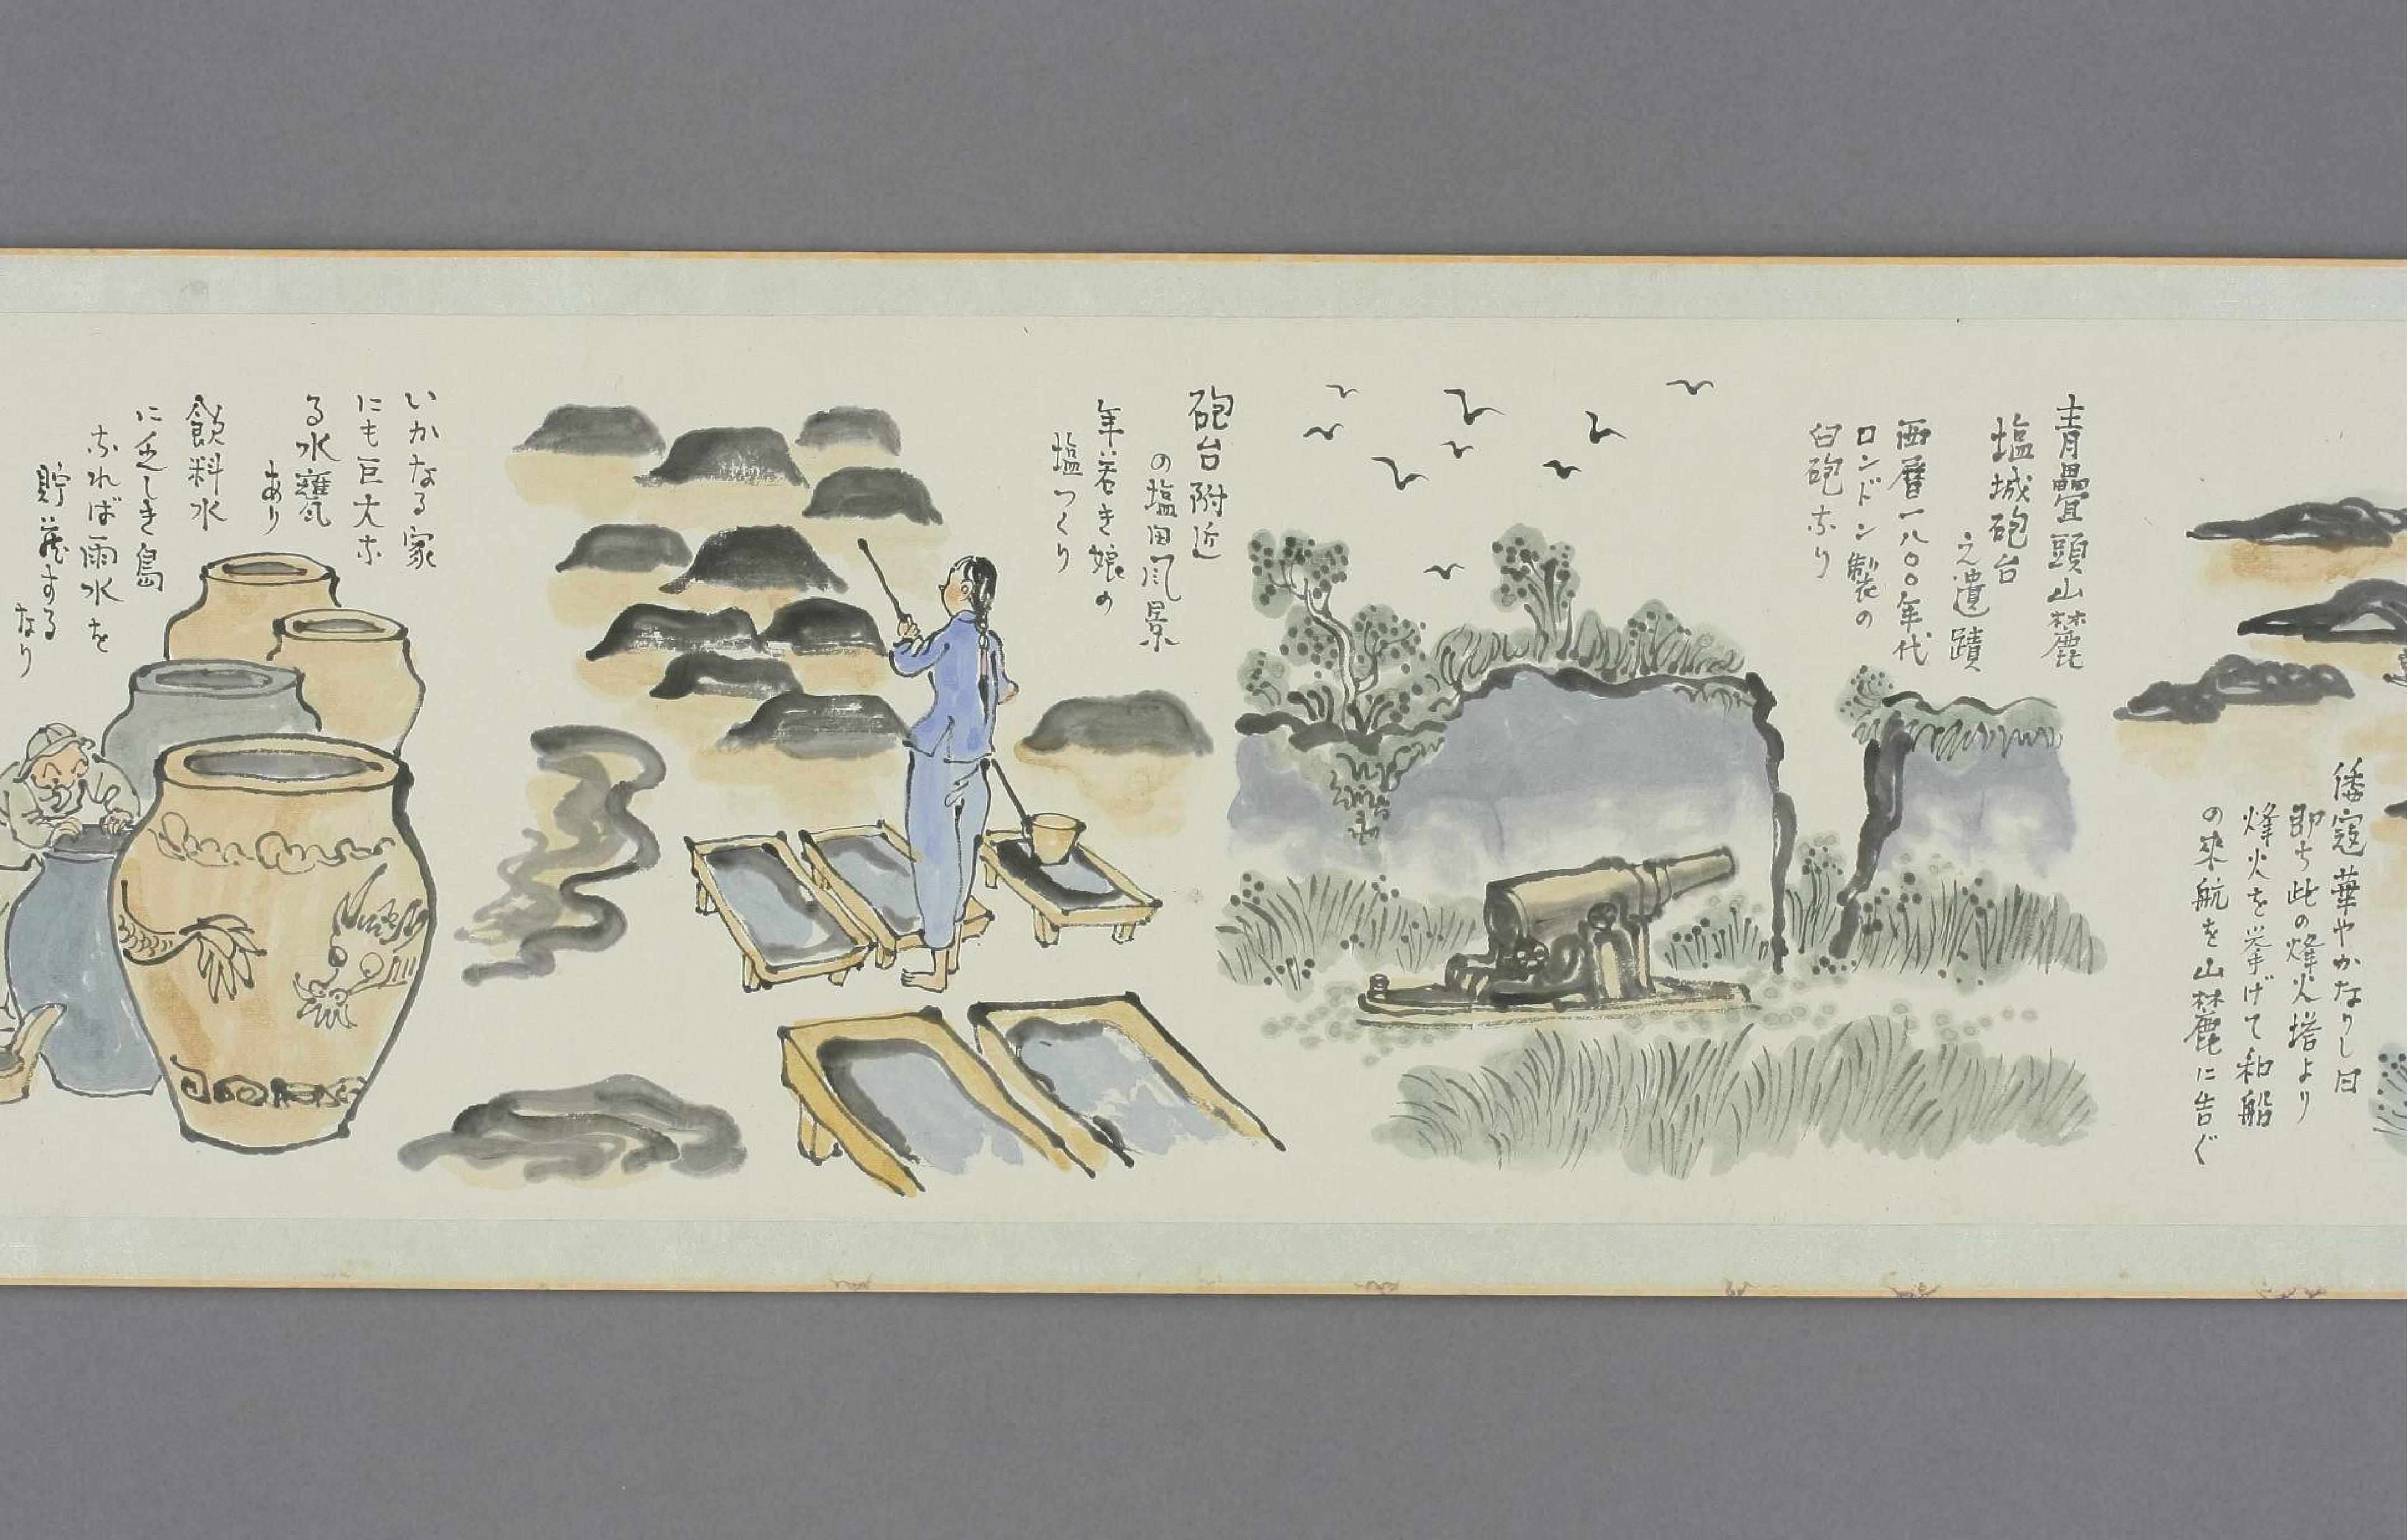 倭寇華やかなりし日
即ち此の烽火塔より
烽火を挙げて和船
の来航を山麓に告ぐ
青疊頭山麓
塩城砲台
之遺蹟
西暦一八〇〇年代
ロンドン製の
臼砲なり
砲台附近
の塩田風景
年若き娘の
塩つくり
いかなる家
にも巨大な
る水甕
あり
飲料水
に乏しき島
なれば雨水を
貯蔵する
なり